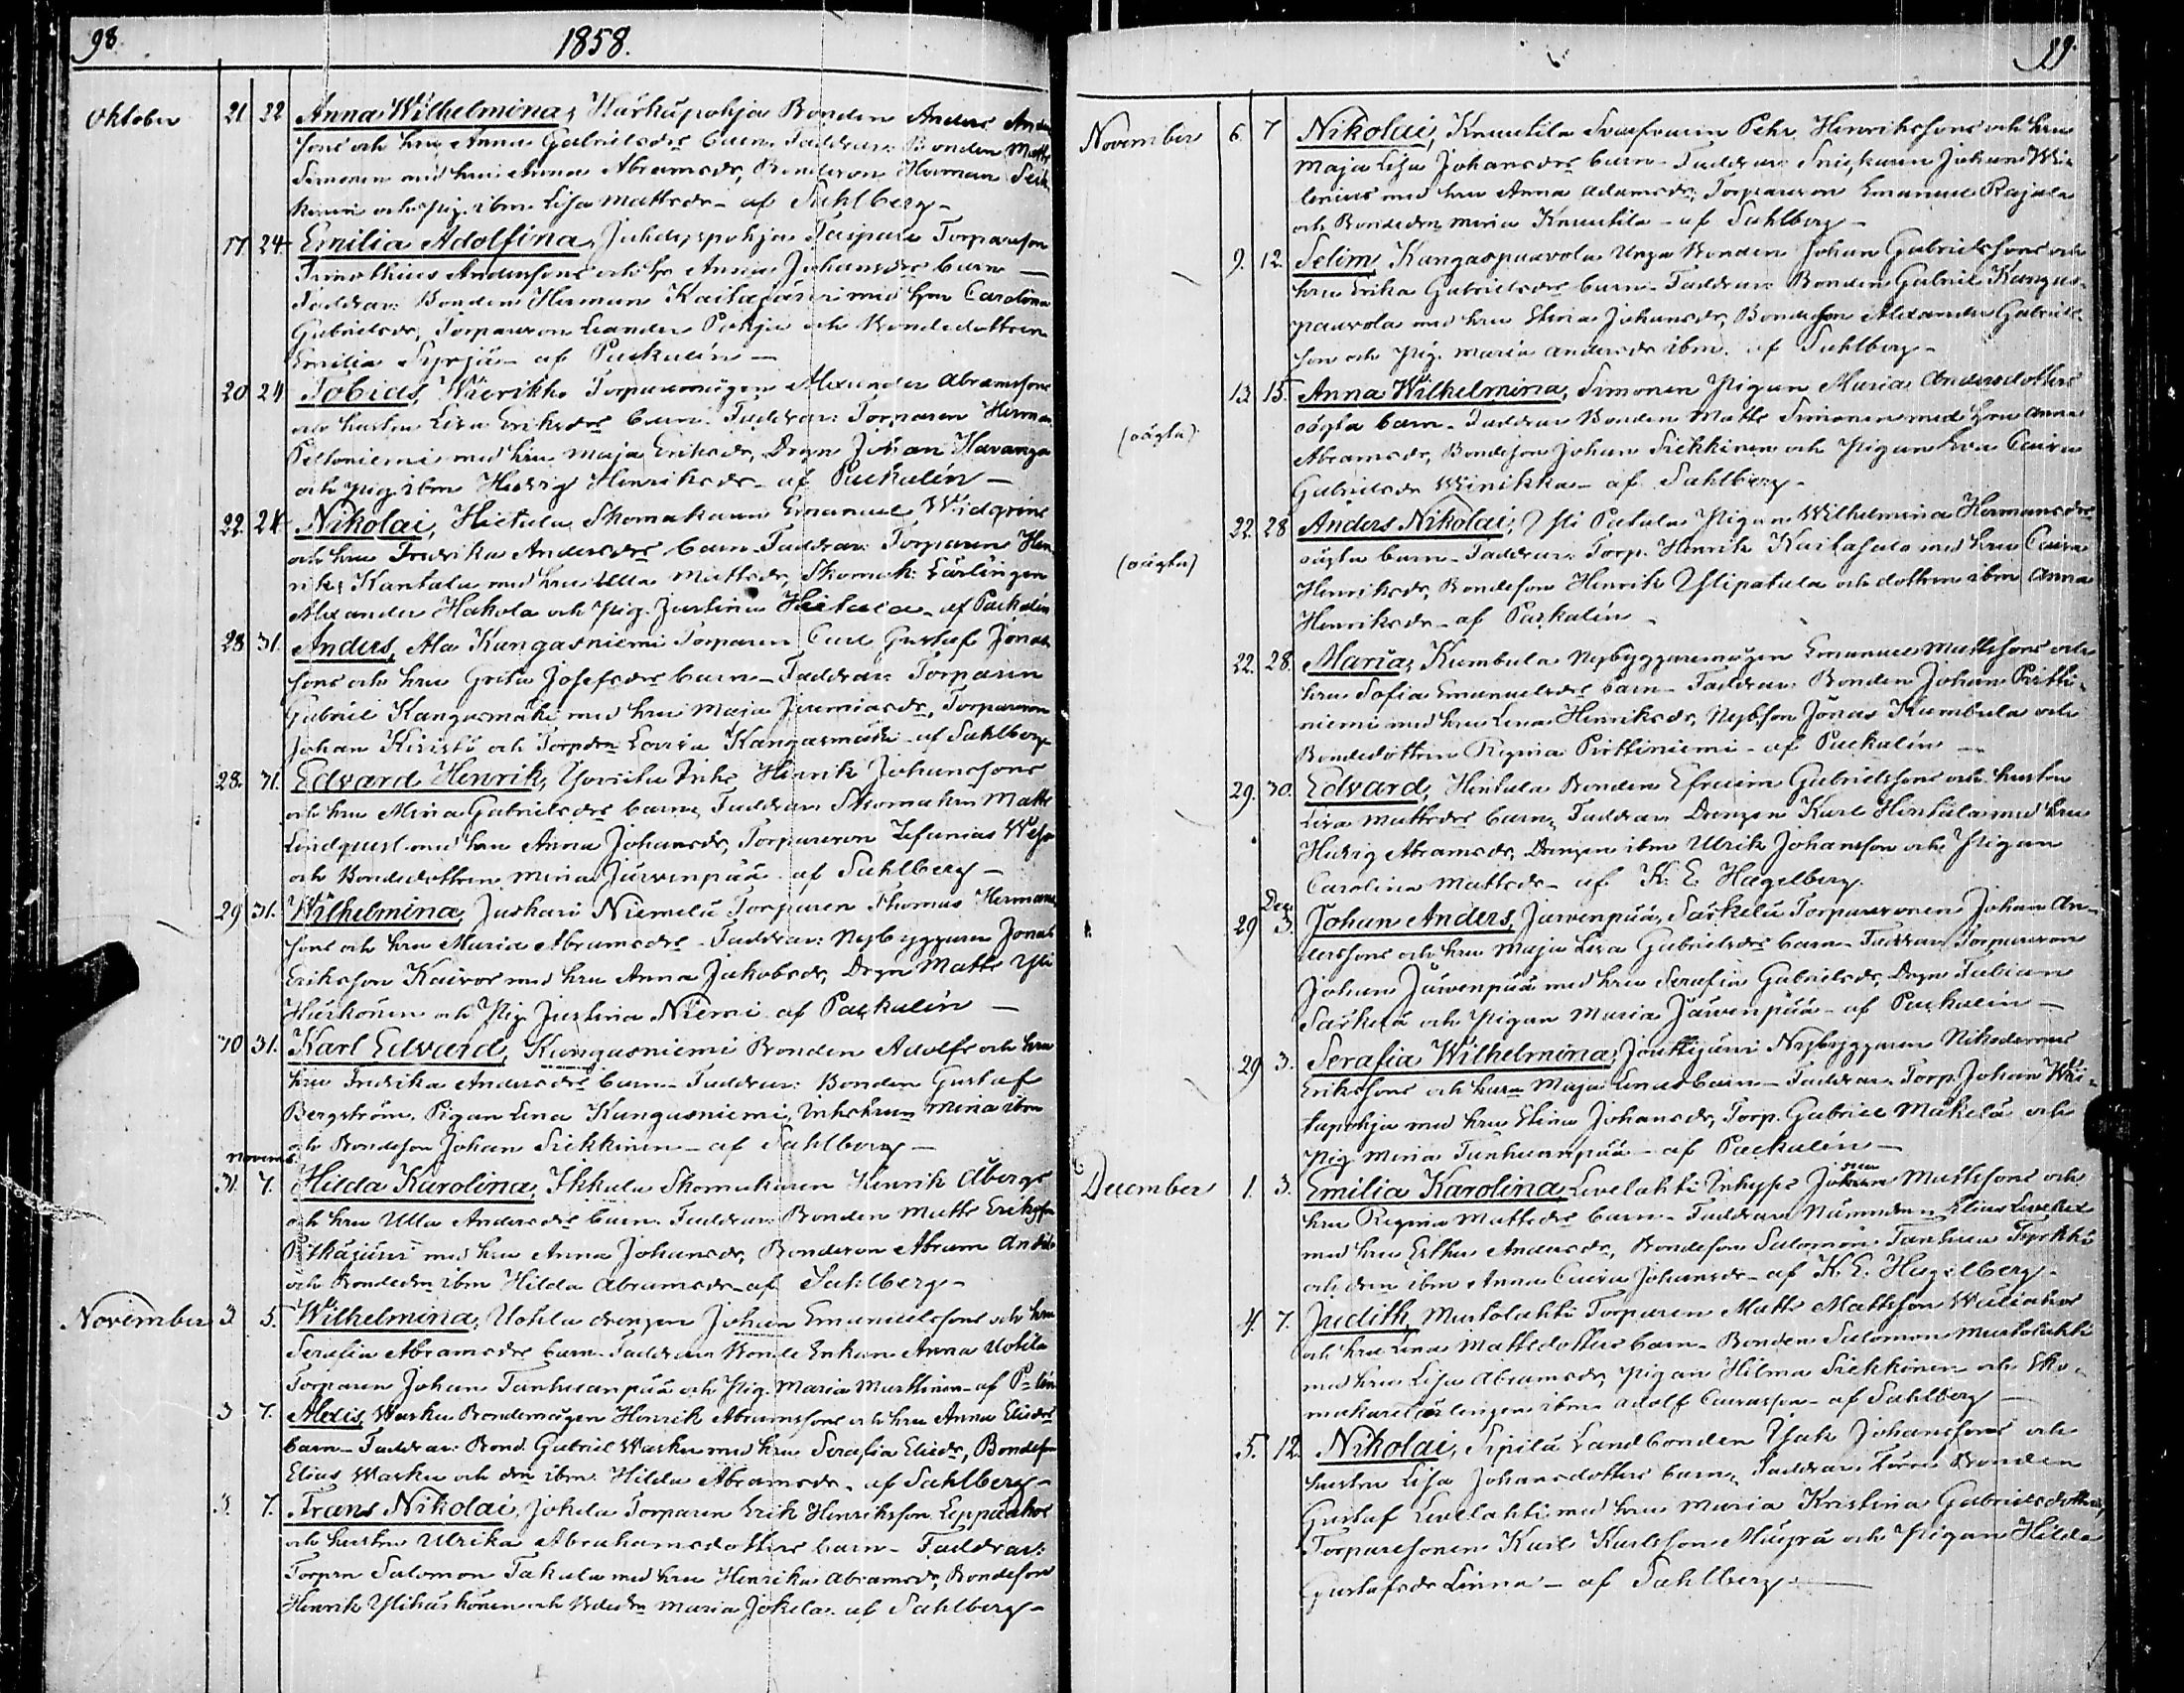 98
1858.
Oktober 21 22 Anna Wilhelmina, Härkäpohja Bonden Anders
sons och hru Anna Gabrielsdrs barn Faddrar: Bonden Matts
Simonen med hru Anna Abramsdr, Bondeson Herman
och pig. ibm Lisa Mattsdr - af Sahlberg -
17. 24. Emilia Adolfina, Torpareson
Timothius Anderssons och h. Anna Johansdrs barn —
Faddrar: Bonden Herman Kaitajärvi med hru Carolina
Gabrielsdr, Torpareson Leander Pohja och Bondedottren
Emilia Syrjä - af Packalén —
20 24 Tobias, Wiorikko Torparemågen Alexander Abramssons
och hustru Lisa Eriksdrs barn. Faddrar: Torparen Herman
Peltoniemi med hru Maja Eriksdr, Drgn Johan Havanga
och pig. ibm Hedvig Henriksdr - af Packalén —
22. 24 Nikolai, Hietala Skomakaren Emanuel Widgrens
och hru Fredrika Andersdrs barn Faddrar: Torparen Hen-
rik Kantala med hru Ulla Mattsdr, Skomak: Lärlingen
Alexander Hakola och Pig. Justina Hietala - af Packalén
23 31. Anders, Ala Kangasniemi Torparen Carl Gustaf Jonas
sons och hru Greta Josefsdrs barn - Faddrar: Torparen
Gabriel Kangasmäki med hru Maja Jeremiasdr, Torpareson
Johan Kivistö och Torpdrn Lovisa Kangasmäki - af Sahlberg
28. 31. Edvard Henrik, Inhs Henrik Johanssons
och hru Mina Gabrielsdrs barn, Faddrar: Skomakrn Matts
Lindquist med hru Anna Johansdr, Torpareson Zefanias
och Bondedottren Mina Järvenpää af Sahlberg -
29 31. Wilhelmina, Juskari Niemelä Torparen Thomas Hermans
sons och hru Maria Abramsdrs - Faddrar: Nybyggaren Jonas
Eriksson Kaivos med hru Anna Jakobsdr, Drgn Matts Yli
Härkönen och Pig. Justina Niemi af Packalén —
30 31. Karl Edvard, Kangasniemi Bonden Adolfs och hru
hru Fredrika Andersdrs barn - Faddrar: Bonden Gustaf
Bergström, Pigan Lena Kangasniemi, Inhshrun Mina ibm
och Bondeson Johan Siekkinen - af Sahlberg —
novemb.
31. 7. Hilda Karolina, Ikkala Skomakaren Henrik Åbergs
och hru Ulla Andersdrs barn. Faddrar: Bonden Matts Eriksson
Pitkäjärvi med hru Anna Johansdr, Bondeson Abram Anttila
och Bondedrn ibm Hilda Abramsdr - af Sahlberg -
November 3. 5. Wilhelmina, Uotila drengen Johan Emanuelssons och hru
Serafia Abramsdrs barn - Faddrar: Bonde Enkan Anna Uotila
Torparen Johan Tanhuanpää och Pig. Maria Marttinen - af P-lén
3 7. Alexis, Warku Bondemågen Henrik Abramssons och hru Anna Eliedrs
barn - Faddrar: Bond. Gabriel Warku med hru Serafia Eliedr, Bondeson
Elias Warku och drn ibm. Hilda Abramsdr. af Sahlberg -
3. 7. Frans Nikolai, Jokela Torparen Erik Henriksson Leppäahos
och hustru Ulrika Abrahamsdotters barn - Faddrar:
Torprn Salomon Takala med hru Henrika Abramsdr, Bondeson
Henrik Ylihärkönen och Bdedrn Maria Jokela. af Sahlberg -
99.
November 6. 7 Nikolai, Knuutila Svarfvaren Pehr Henrikssons och hru
Maja Lisa Johansdrs barn - Faddrar: Snickaren Johan Wi-
lenius med hru Anna Adamsdr, Torpareson Emanuel Rajala
och Bondedrn Mina Knuutila - af Sahlberg -
9. 12. Selim, Kangaspaavola Unga Bonden Johan Gabrielssons och
hru Erika Gabrielsdrs barn - Faddrar: Bonden Gabriel Kangas-
paavola med hru Stina Johansdr, Bondeson Alexander Gabriels-
son och Pig. Maria Andersdr ibm. af Sahlberg -
(oägta) 13. 15. Anna Wilhelmina, Simonen Pigan Maria Andersdotters
oägta barn - Faddrar: Bonden Matts Simonen med hru Anna
Abramsdr, Bondeson Johan Siekkinen och Pigan Eva Caisa
Gabrielsdr Winikka - af Sahlberg -
(oägta) 22. 28 Anders Nikolai, Yli Patala Pigan Wilhelmina Hermansdrs
oägta barn - Faddrar: Torp. Henrik Kaitasalo med hru Caisa
Henriksdr, Bondeson Henrik Ylipatala och dottren ibm Anna
Henriksdr - af Packalén -
22. 28. Maria, Kumbula Nybyggaremågen Emanuel Mattssons och
hru Sofia Emanuelsdrs barn - Faddrar: Bonden Johan Pirtti-
niemi med hru Lena Henriksdr, Nybson Jonas Kumbula och
Bondedottren Regina Pirttiniemi - af Packalén —
29. 30. Edvard, Hintala Bonden Efraim Gabrielssons och hustru
Lisa Mattsdrs barn, Faddrar: Drengen Karl Hintala med hru
Hedvig Abramsdr, Drengen ibm Ulrik Johansson och Pigan
Carolina Mattsdr - af K. E. Hagelberg.
Dec
29 3. Johan Anders, Järvenpää, Särkelä Torparesonen Johan An-
derssons och hru Maja Lisa Gabrielsdrs barn - Faddrar: Torpareson
Johan Järvenpää med hru Serafia Gabrielsdr, Drgn Fabian
Särkelä och Pigan Maria Järvenpää - af Packalén —
29 3. Serafia Wilhelmina, Jouttijärvi Nybyggaren Nikodemus
Erikssons och hru Maja Lenas barn - Faddrar: Torp. Johan
med hru Stina Johansdr, Torp. Gabriel Mäkelä och
Pig Mina Tanhuanpää - af Packalén —
December 1. 3. Emilia Karolina, Levelahti Inhyses Johan Mattssons och
hru Regina Mattsdrs barn - Faddrar: Nämndem Elias Levelax
med hru Esther Andersdr, Bondeson Salomon Tanhua Tyrkkö
och drn ibm Anna Caisa Johansdr - af K. E. Hagelberg -
4. 7. Judith, Mustolahti Torparen Matts Mattsson
och hru Lena Mattsdotters barn - Bonden Salomon Mustolahti
med hru Lisa Abramsdr, Pigan Hilma Siekkinen och Sko-
makarelärlingen ibm Adolf - af Sahlberg —
5. 12. Nikolai, Sipilä Landbonden Isak Johanssons och
hustru Lisa Johansdotters barn, Faddrar: Bonden
Gustaf Levelahti med hru Maria Kristina Gabrielsdotter,
Torparesonen Karl Karlsson och Pigan Hilda
Gustafsdr Linna - af Sahlberg. —